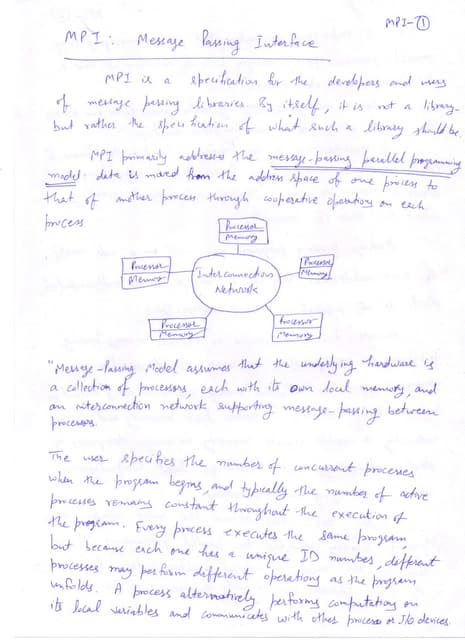 MPI-①
MPI: Message Passing Interface
MPI is a specification for the developers and users
of message passing libraries. By itself, it is not a library-
but rather the specification of what such a library should be.
MPI primarily addresses the message-passing parallel programming
model: data is moved from the address space of one process to
that of another process through cooperative operations on each
process
Processor
Memory
Processor
Memory
Interconnection
Network
Processor
Memory
Processor
Memory
Processor
Memory
"Message-Passing Model assumes that the underlying hardware is
a collection of processors, each with its own local memory, and
an interconnection network supporting message-passing between
processors.
The user specifies the number of concurrent processes
when the program begins, and typically the number of active
processes remains constant throughout the execution of
the program. Every process executes the same program,
but because each one has a unique ID number, different
processes may perform different operations as the program
unfolds. A process alternatively performs computations on
its local variables and communicates with other process or I/O devices.